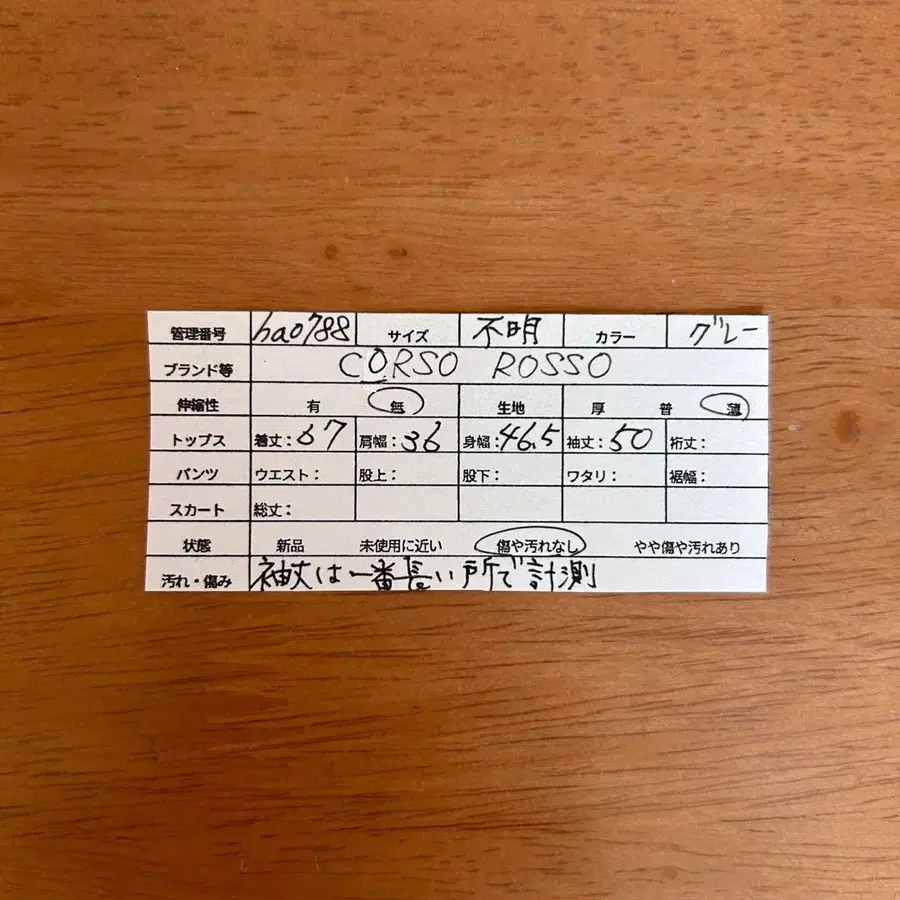 管理番号 hao788 サイズ 不明 カラー グレー
ブランド等 CORSO ROSSO
伸縮性 有 無 生地 厚 普 薄
トップス 着丈：67 肩幅：36 身幅：46.5 袖丈：50 裄丈：
パンツ ウエスト： 股上： 股下： ワタリ： 裾幅：
スカート 総丈：
状態 新品 未使用に近い 傷や汚れなし やや傷や汚れあり
汚れ・傷み 袖丈は一番長い所で計測